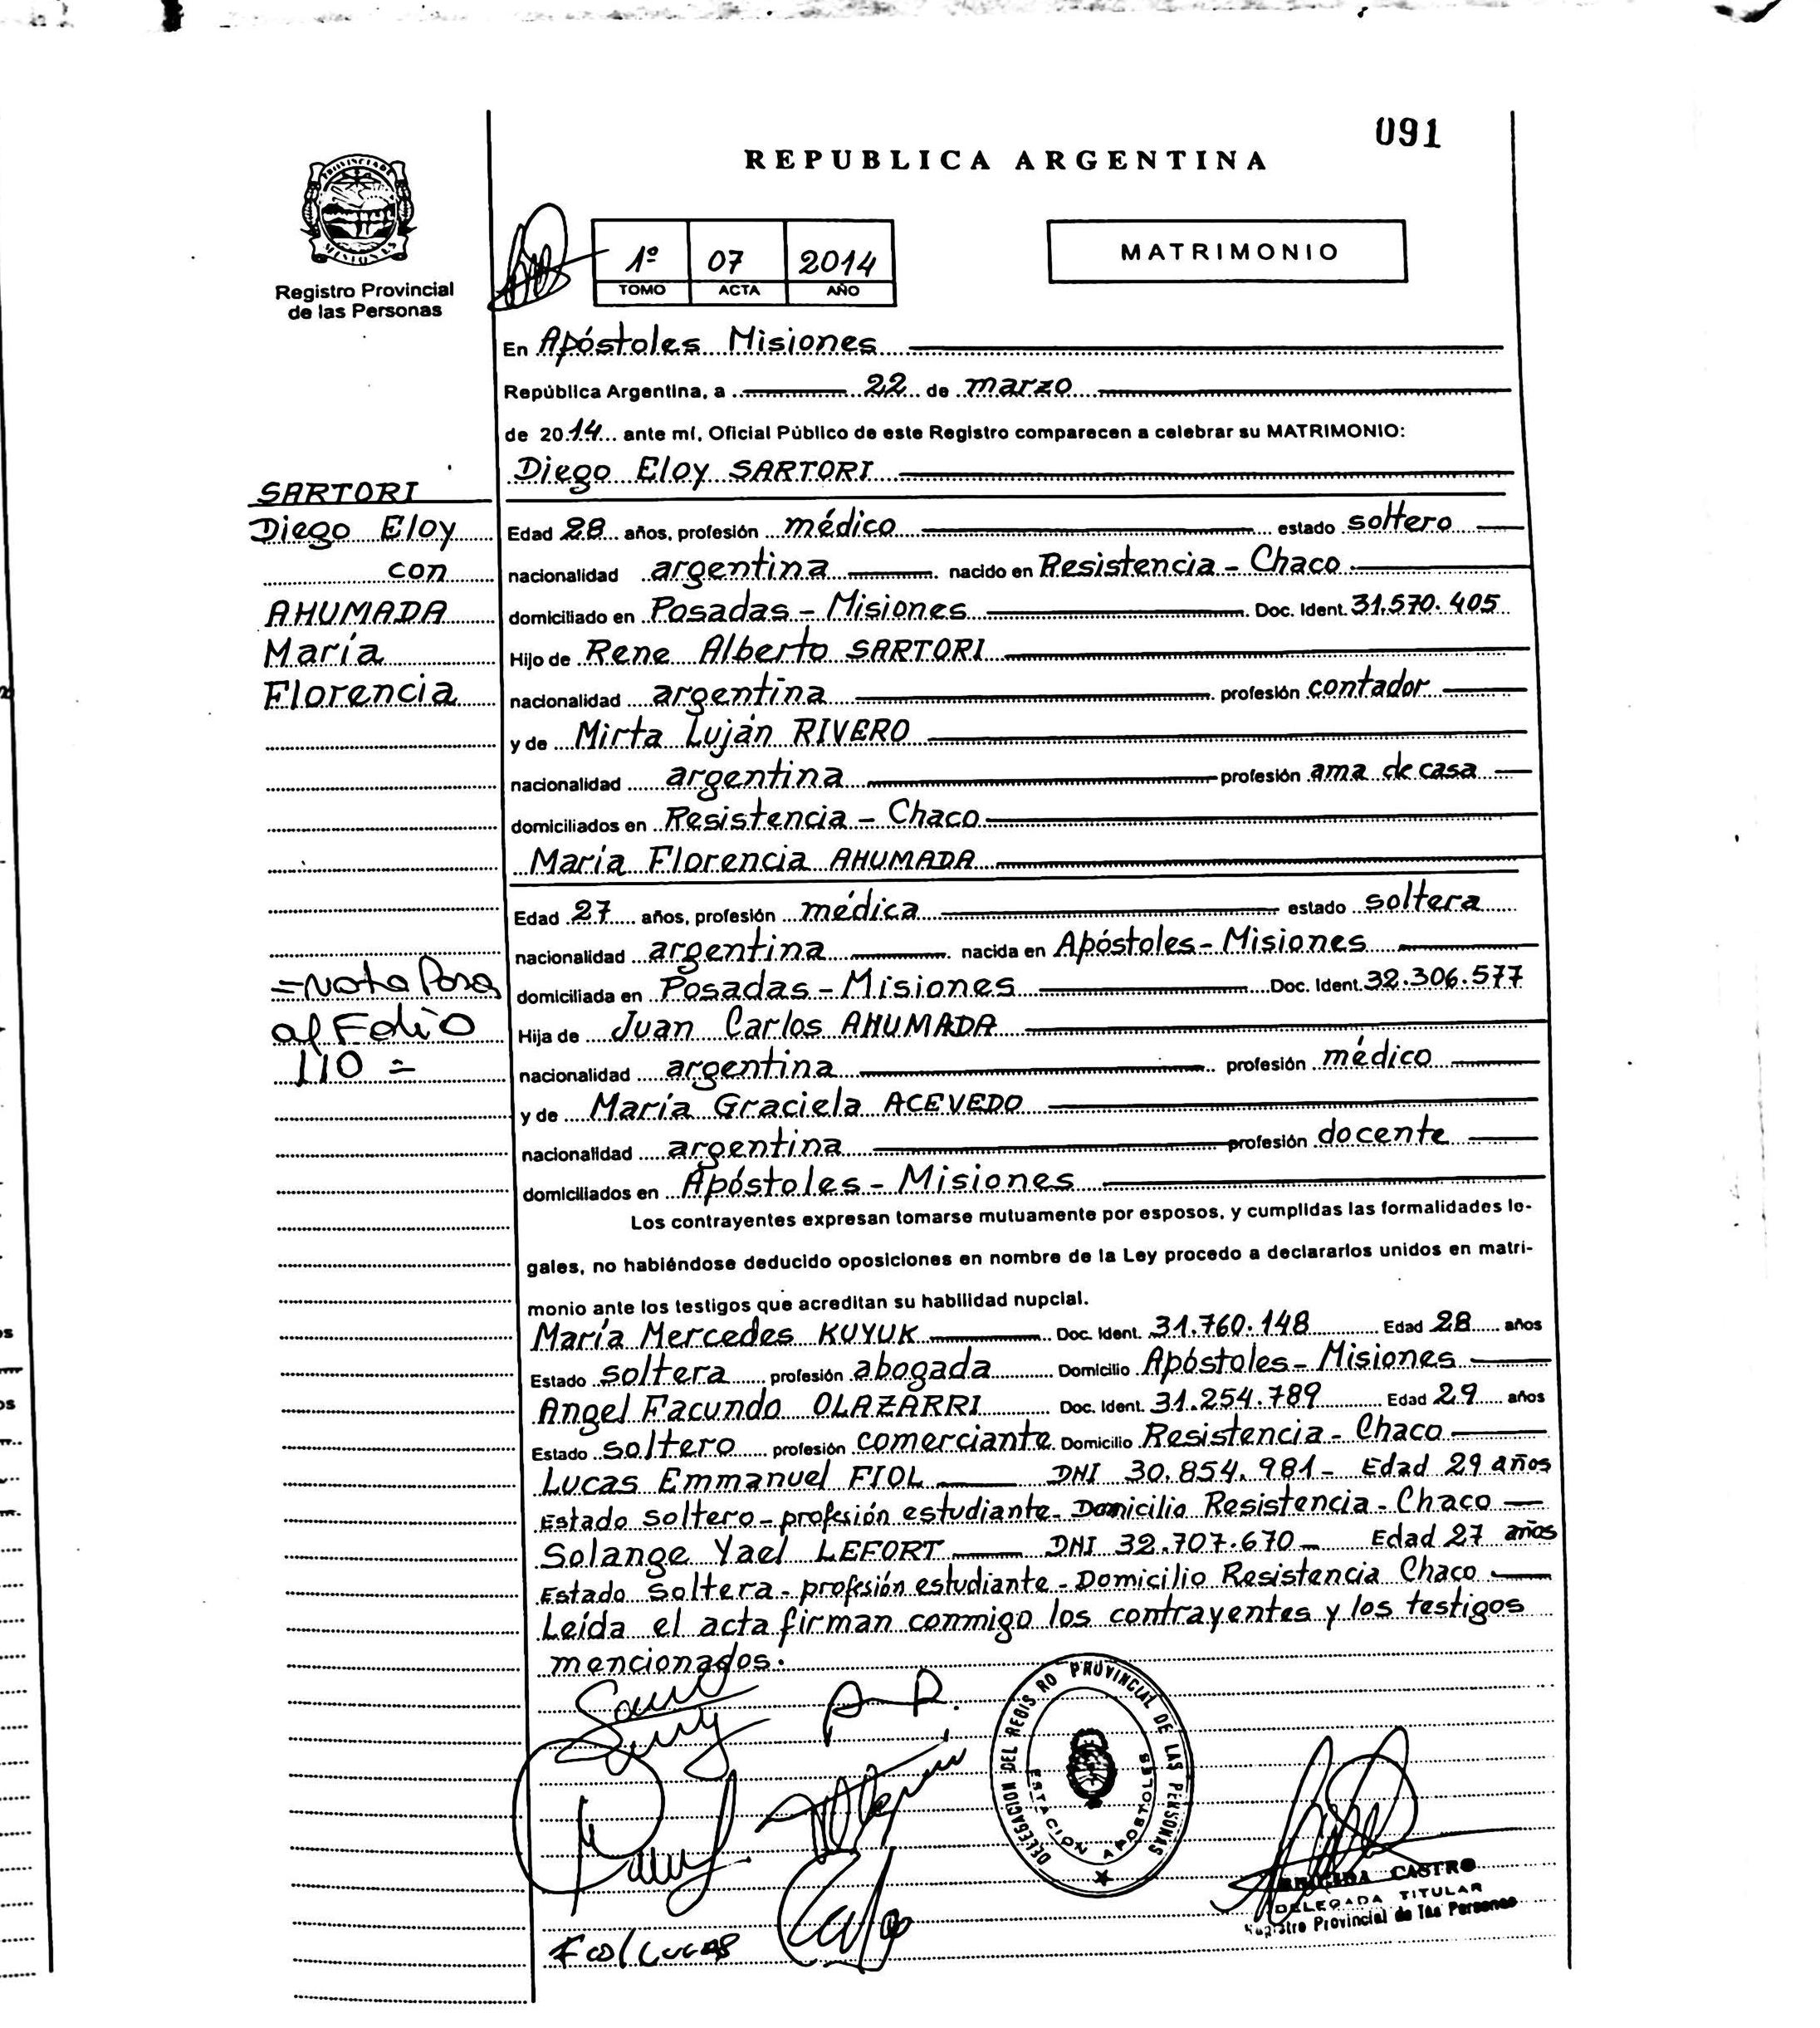 091
REPUBLICA ARGENTINA
PROVINCIA DE
MISIONES
Registro Provincial
de las Personas
1º 07 2014
TOMO ACTA AÑO
MATRIMONIO
En Apóstoles Misiones
República Argentina, a 22 de marzo
de 2014 ante mí, Oficial Público de este Registro comparecen a celebrar su MATRIMONIO:
Diego Eloy SARTORI
SARTORI
Diego Eloy
con
AHUMADA
María
Florencia
Edad 28 años, profesión médico estado soltero
nacionalidad argentina nacido en Resistencia - Chaco
domiciliado en Posadas - Misiones Doc. Ident. 31.570.405
Hijo de Rene Alberto SARTORI
nacionalidad argentina profesión contador
y de Mirta Luján RIVERO
nacionalidad argentina profesión ama de casa
domiciliados en Resistencia - Chaco
María Florencia AHUMADA
Edad 27 años, profesión médica estado soltera
nacionalidad argentina nacida en Apóstoles - Misiones
domiciliada en Posadas - Misiones Doc. Ident. 32.306.577
Hija de Juan Carlos AHUMADA
nacionalidad argentina profesión médico
y de María Graciela ACEVEDO
nacionalidad argentina profesión docente
domiciliados en Apóstoles - Misiones
=Nota Pasa
al Folio
110=
Los contrayentes expresan tomarse mutuamente por esposos, y cumplidas las formalidades le-
gales, no habiéndose deducido oposiciones en nombre de la Ley procedo a declararlos unidos en matri-
monio ante los testigos que acreditan su habilidad nupcial.
María Mercedes KUYUK Doc. Ident. 31.760.148 Edad 28 años
Estado soltera profesión abogada Domicilio Apóstoles - Misiones
Angel Facundo OLAZARRI Doc. Ident. 31.254.789 Edad 29 años
Estado soltero profesión comerciante Domicilio Resistencia - Chaco
Lucas Emmanuel FIOL DNI 30.854.981 - Edad 29 años
Estado soltero - profesión estudiante - Domicilio Resistencia - Chaco
Solange Yael LEFORT DNI 32.707.670 - Edad 27 años
Estado soltera - profesión estudiante - Domicilio Resistencia Chaco
Leída el acta firman conmigo los contrayentes y los testigos
mencionados.
DELEGACION DEL REGISTRO PROVINCIAL DE LAS PERSONAS
ESTACION APOSTOLES
CASTRO
DELEGADA TITULAR
Registro Provincial de las Personas